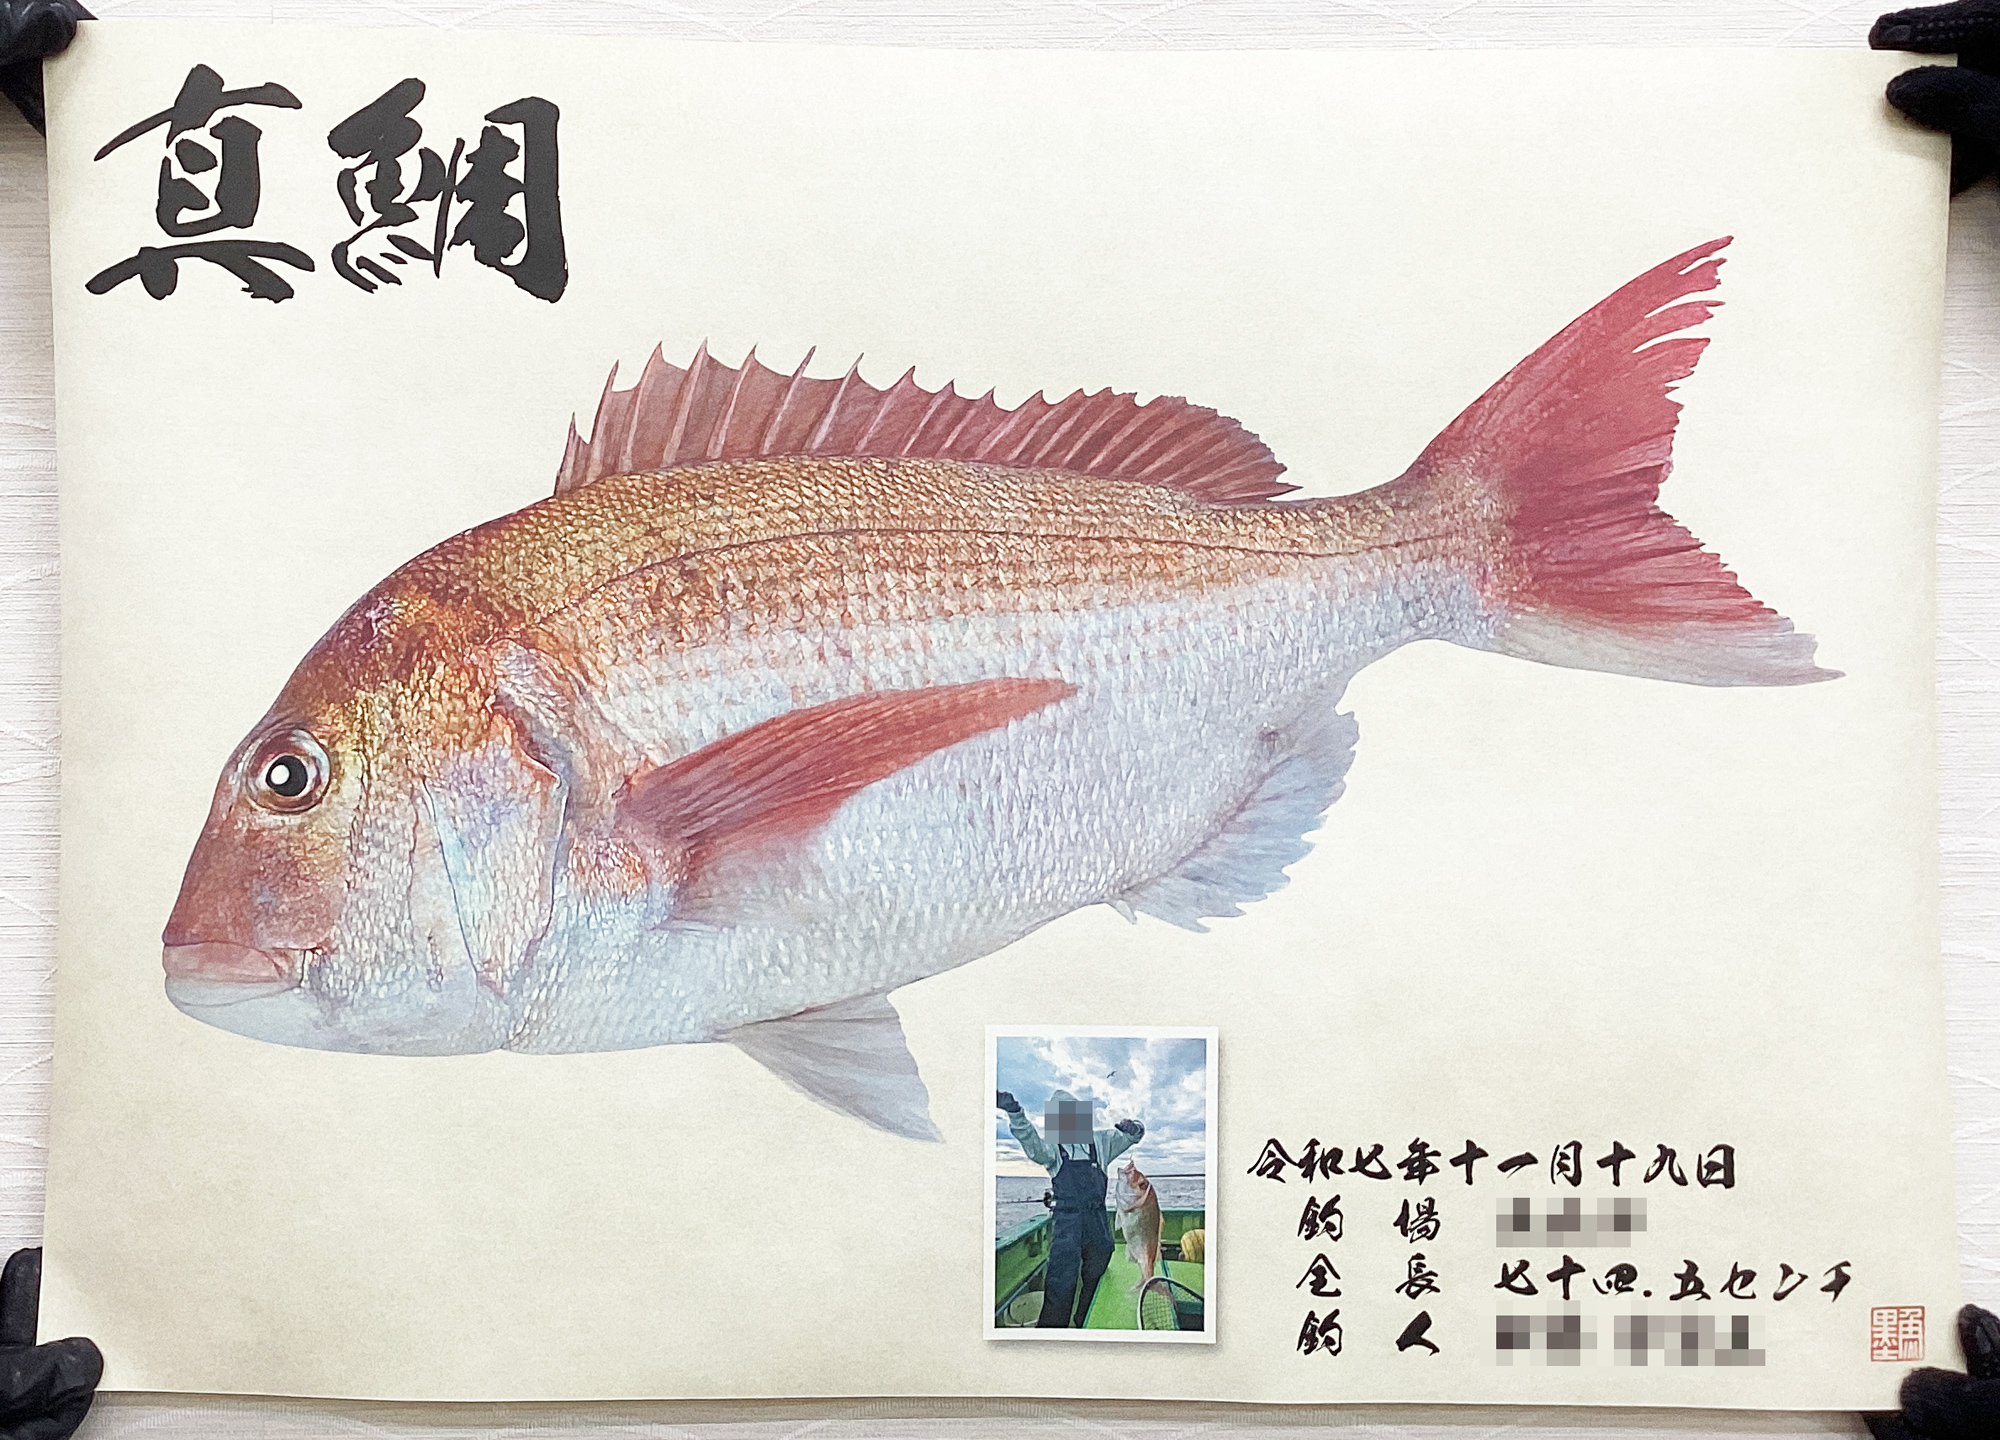 真鯛
令和七年十一月十九日
釣場
全長 七十四.五センチ
釣人
魚墨